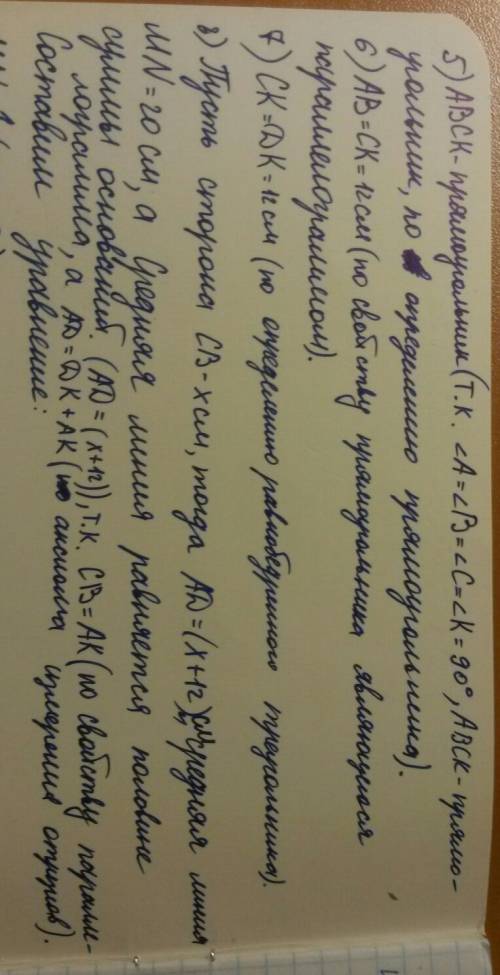 5) ABCK - прямоугольник (т.к. ∠A=∠B=∠C=∠K=90°, ABCK - прямо-
угольник, по определению прямоугольника).
6) AB=CK=12см (по свойству прямоугольника являющегося
параллелограммом).
7) CK=DK=12см (по определению равнобедренного треугольника).
8) Пусть сторона CB - x см, тогда AD=(x+12)см, средняя линия
MN=20 см, а средняя линия равняется половине
суммы оснований. (AD=(x+12)), т.к. CB=AK (по свойству паралле-
лограмма, а AD=DK+AK (по аксиоме измерения отрезков).
Составим уравнение: